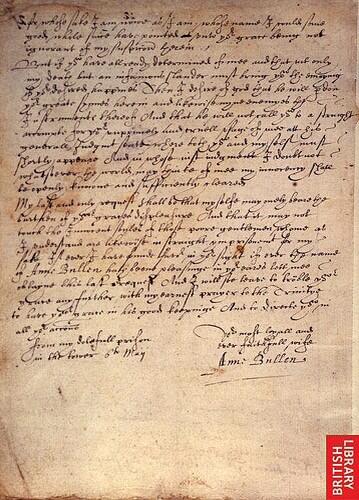 for whose sake I am nowe as I am, whose name I could some
good while since have pointed unto yor grace being not
ignorant of my suspition therein
But if yu have allreadie determined of mee and that not only
my death but an infamous slander must bring yu the enioying
of yor desired happines Then I desire of god that he will pdon
yor great sinnes herein and likewise myne enemyes the
instruments thereof And that he will not call yu to a straight
accompte for yor unprincely and cruell usage of mee at his
generall Judgmt seate where both yu and my selfe must
shortly appeare And in whose just judgmente I doubt not
whatsoever the world may thinke of mee my innocency shall
be openly knowne and sufficiently cleared
My last and only request shall be that my selfe may onely beare the
burthen of yor graces displeasure And that it may not
touch the innocent soules of those poore gentlemen whome as
I understand are likewise in straight imprisonment for my
sake If ever I have found favor in yor sight if ever the name
of Anne Bullen hath beene pleasinge in yor eares lett mee
obtayne this last request And I will soe leave to trouble yor
grace any further with my earnest prayer to the Trinitye
to have yor grace in his good keepinge And to directe yu in
all yor actions
from my dolefull prison
in the tower 6th May
Yor most loyall and
ever faithfull wife
Anne Bullen
BRITISH
LIBRARY